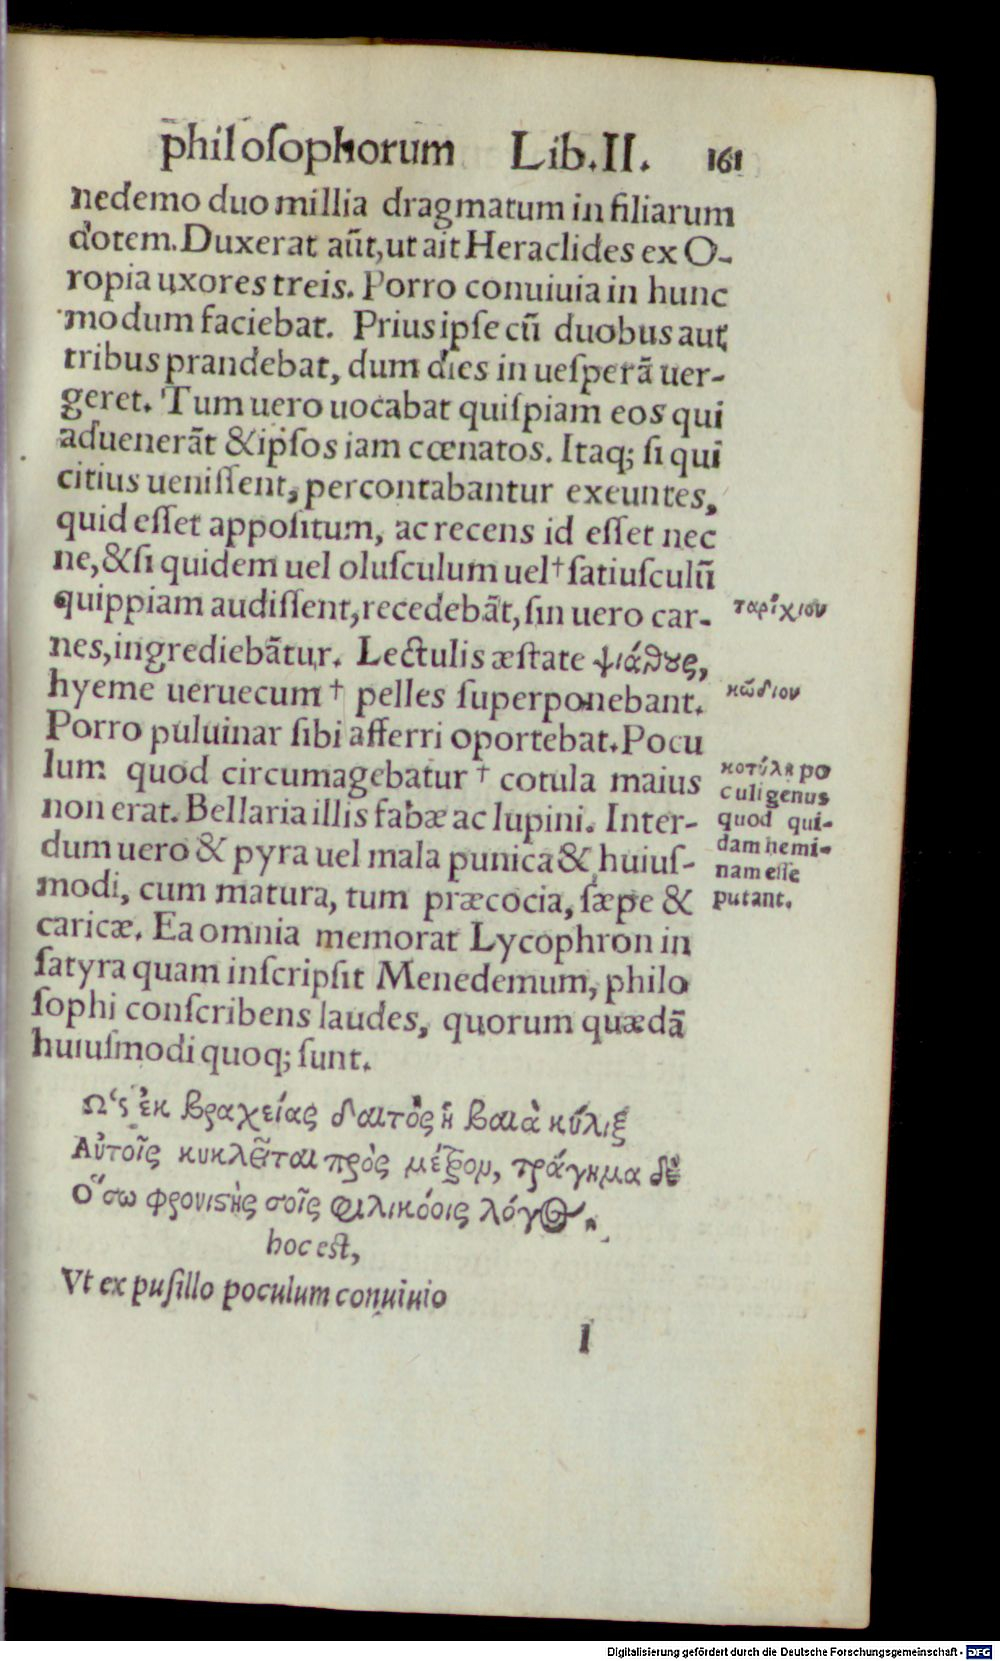 philosophorum Lib.II. 161
nedemo duo millia dragmatum in filiarum
dotem. Duxerat aūt, ut ait Heraclides ex O-
ropia uxores treis. Porro conuiuia in hunc
modum faciebat. Prius ipſe cū duobus aut
tribus prandebat, dum dies in ueſperā uer-
geret. Tum uero uocabat quiſpiam eos qui
aduenerāt & ipſos iam cœnatos. Itaq; ſi qui
citius ueniſſent, percontabantur exeuntes,
quid eſſet appoſitum, ac recens id eſſet nec
ne, & ſi quidem uel oluſculum uel † ſatiuſculū
quippiam audiſſent, recedebāt, ſin uero car-
nes, ingrediebātur. Lectulis æſtate ψιάθους,
hyeme ueruecum † pelles ſuperponebant.
Porro puluinar ſibi afferri oportebat. Pocu
lum quod circumagebatur † cotula maius
non erat. Bellaria illis fabæ ac lupini. Inter-
dum uero & pyra uel mala punica & huiuſ-
modi, cum matura, tum præcocia, ſæpe &
caricæ. Ea omnia memorat Lycophron in
ſatyra quam inſcripſit Menedemum, philo
ſophi conſcribens laudes, quorum quædā
huiuſmodi quoq; ſunt.
Ως ἐκ βραχείας δαιτὸς ἡ βαιὰ κύλιξ
Αὐτοῖς κυκλεῖται πρὸς μέτρον, τράγημα δὲ
Ὅσω φρονιστὴς σοῖς φιλικόοις λόγος.
hoc eſt,
Vt ex puſillo poculum conuiuio
l
ταρίχιον
κώδιον
κοτύλη po
culi genus
quod qui-
dam hemi-
nam eſſe
putant.
Digitalisierung gefördert durch die Deutsche Forschungsgemeinschaft - DFG